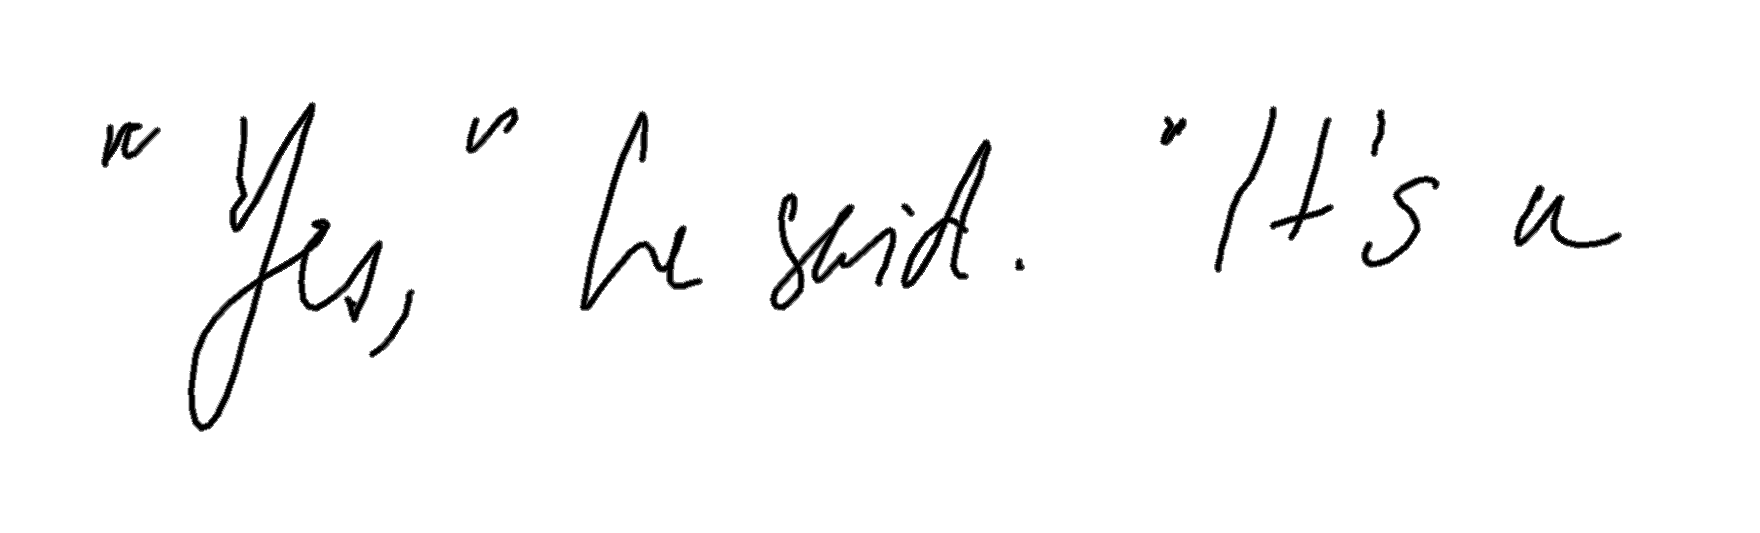 "Yes," he said. "It's a